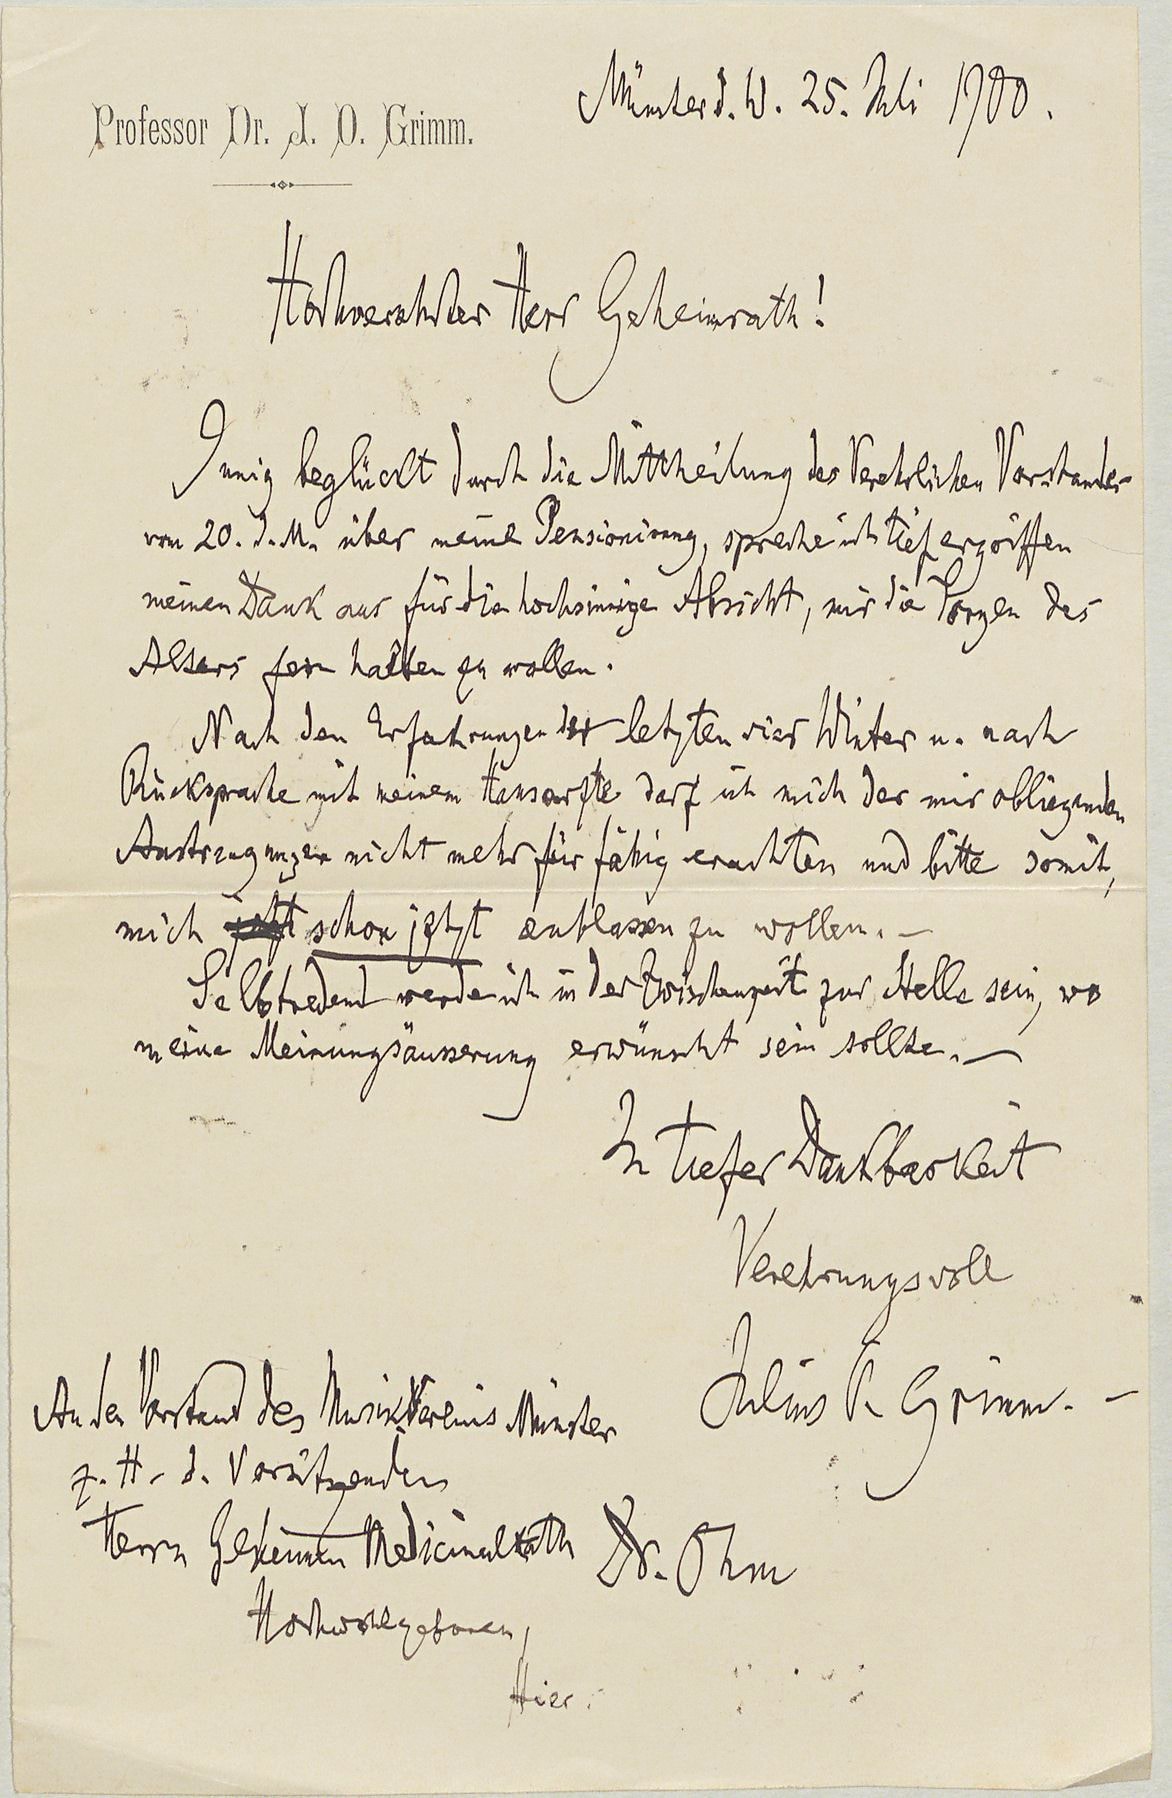 Professor Dr. J. O. Grimm.
Münster i. W. 25. Juli 1900.
Hochverehrter Herr Geheimrath!
Innig beglückt durch die Mittheilung des Verehrlichen Vorstandes
vom 20. d. M. über meine Pensionirung, spreche ich tief ergriffen
meinen Dank aus für die hochsinnige Absicht, mir die Sorgen des
Alters fern halten zu wollen.
Nach den Erfahrungen der letzten vier Winter u. nach
Rücksprache mit meinem Hausarzte darf ich mich der mir obliegenden
Anstrengungen nicht mehr für fähig erachten und bitte somit,
mich jetzt schon jetzt entlassen zu wollen. —
Selbstredend werde ich in der Zwischenzeit zur Stelle sein, wo
meine Meinungsäusserung erwünscht sein sollte. —
In tiefer Dankbarkeit
Verehrungsvoll
Julius O. Grimm. —
An den Vorstand des Musikvereins Münster
z. H. d. Vorsitzenden
Herrn Geheimen Medicinalrath Dr. Ohm
Hochwohlgeboren,
Hier.